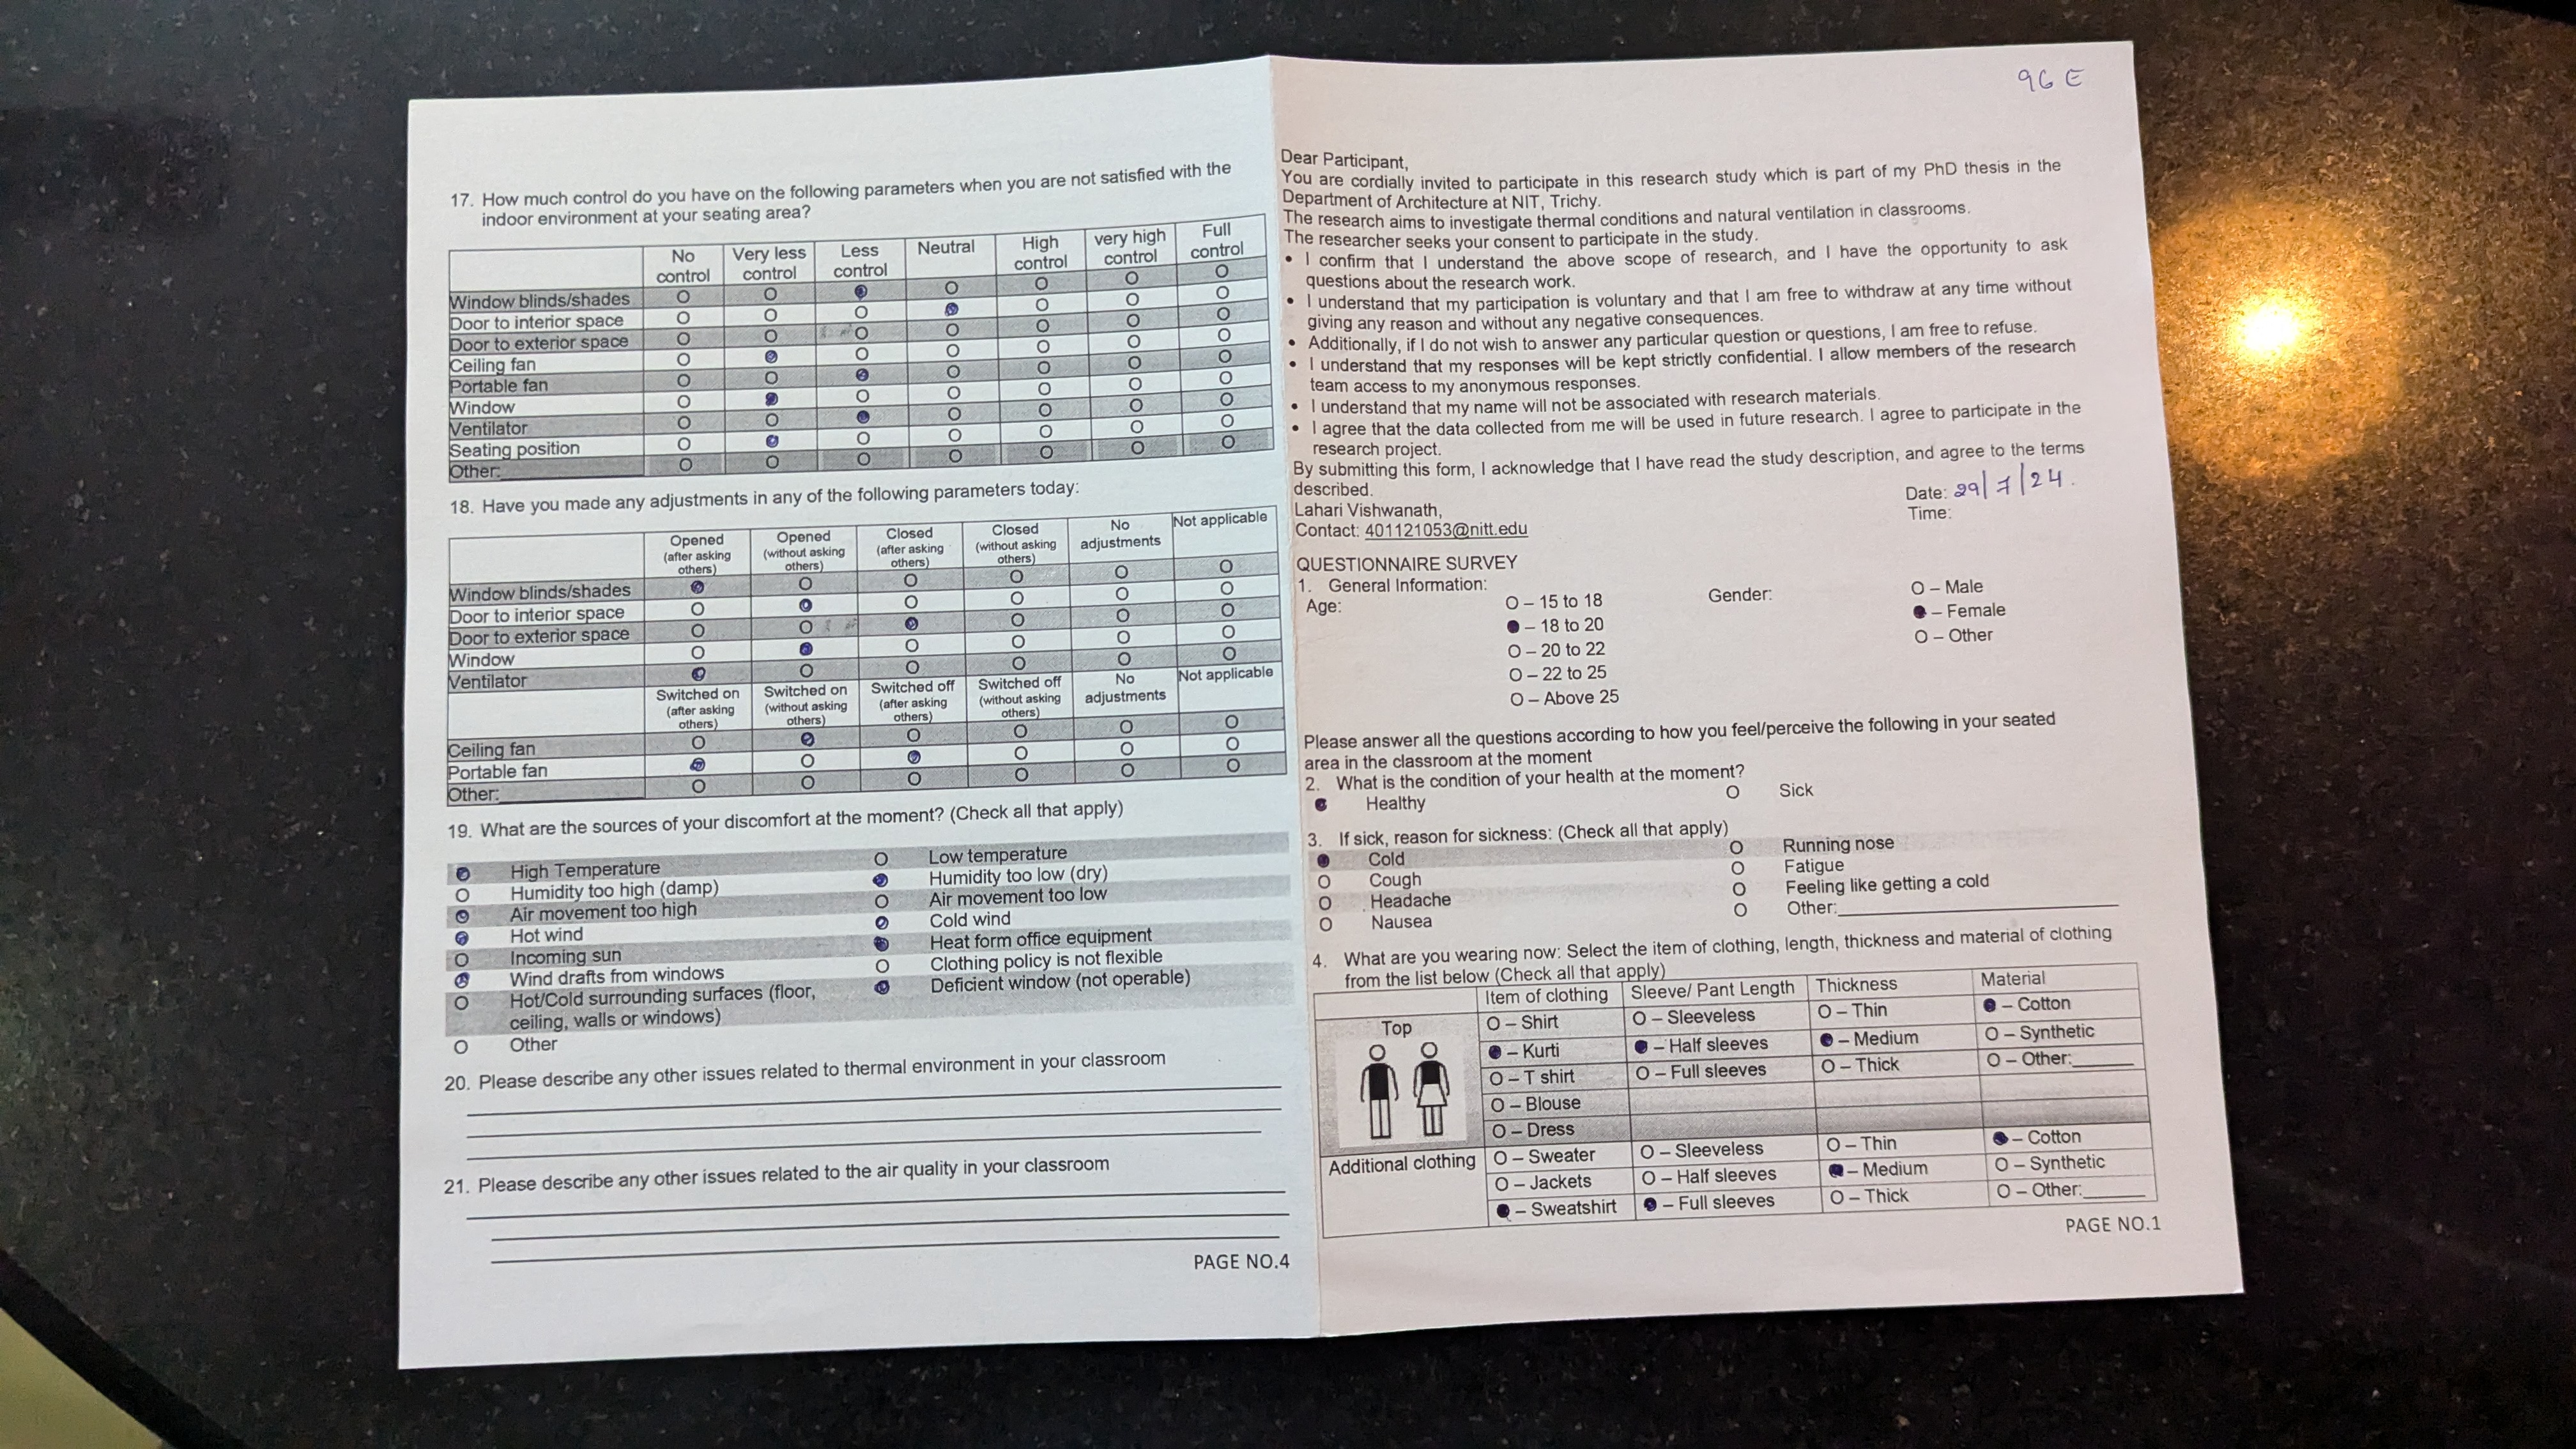 17. How much control do you have on the following parameters when you are not satisfied with the
indoor environment at your seating area?
No control Very less control Less control Neutral High control very high control Full control
Window blinds/shades
Door to interior space
Door to exterior space
Ceiling fan
Portable fan
Window
Ventilator
Seating position
Other:
18. Have you made any adjustments in any of the following parameters today:
Opened (after asking others) Opened (without asking others) Closed (after asking others) Closed (without asking others) No adjustments Not applicable
Window blinds/shades
Door to interior space
Door to exterior space
Window
Ventilator
Switched on (after asking others) Switched on (without asking others) Switched off (after asking others) Switched off (without asking others) No adjustments Not applicable
Ceiling fan
Portable fan
Other:
19. What are the sources of your discomfort at the moment? (Check all that apply)
High Temperature Low temperature
Humidity too high (damp) Humidity too low (dry)
Air movement too high Air movement too low
Hot wind Cold wind
Incoming sun Heat form office equipment
Wind drafts from windows Clothing policy is not flexible
Hot/Cold surrounding surfaces (floor, Deficient window (not operable)
ceiling, walls or windows)
Other
20. Please describe any other issues related to thermal environment in your classroom
21. Please describe any other issues related to the air quality in your classroom
PAGE NO.4
96 E
Dear Participant,
You are cordially invited to participate in this research study which is part of my PhD thesis in the
Department of Architecture at NIT, Trichy.
The research aims to investigate thermal conditions and natural ventilation in classrooms.
The researcher seeks your consent to participate in the study.
• I confirm that I understand the above scope of research, and I have the opportunity to ask
questions about the research work.
• I understand that my participation is voluntary and that I am free to withdraw at any time without
giving any reason and without any negative consequences.
• Additionally, if I do not wish to answer any particular question or questions, I am free to refuse.
• I understand that my responses will be kept strictly confidential. I allow members of the research
team access to my anonymous responses.
• I understand that my name will not be associated with research materials.
• I agree that the data collected from me will be used in future research. I agree to participate in the
research project.
By submitting this form, I acknowledge that I have read the study description, and agree to the terms
described.
Date: 29/7/24.
Lahari Vishwanath,
Time:
Contact: 401121053@nitt.edu
QUESTIONNAIRE SURVEY
1. General Information:
Age: O – 15 to 18 Gender: O – Male
– 18 to 20 – Female
O – 20 to 22 O – Other
O – 22 to 25
O – Above 25
Please answer all the questions according to how you feel/perceive the following in your seated
area in the classroom at the moment
2. What is the condition of your health at the moment?
Healthy O Sick
3. If sick, reason for sickness: (Check all that apply)
Cold O Running nose
O Cough O Fatigue
O Headache O Feeling like getting a cold
O Nausea O Other:
4. What are you wearing now: Select the item of clothing, length, thickness and material of clothing
from the list below (Check all that apply)
Item of clothing Sleeve/ Pant Length Thickness Material
Top O – Shirt O – Sleeveless O – Thin – Cotton
– Kurti – Half sleeves – Medium O – Synthetic
O – T shirt O – Full sleeves O – Thick O – Other:
O – Blouse
O – Dress
Additional clothing O – Sweater O – Sleeveless O – Thin – Cotton
O – Jackets O – Half sleeves – Medium O – Synthetic
– Sweatshirt – Full sleeves O – Thick O – Other:
PAGE NO.1